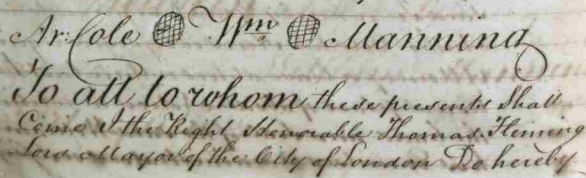 Ar: Cole Wm. Manning
To all to whom these presents Shall
Come I the Right Honorable Thomas Fleming
Lord Mayor of the City of London Do hereby